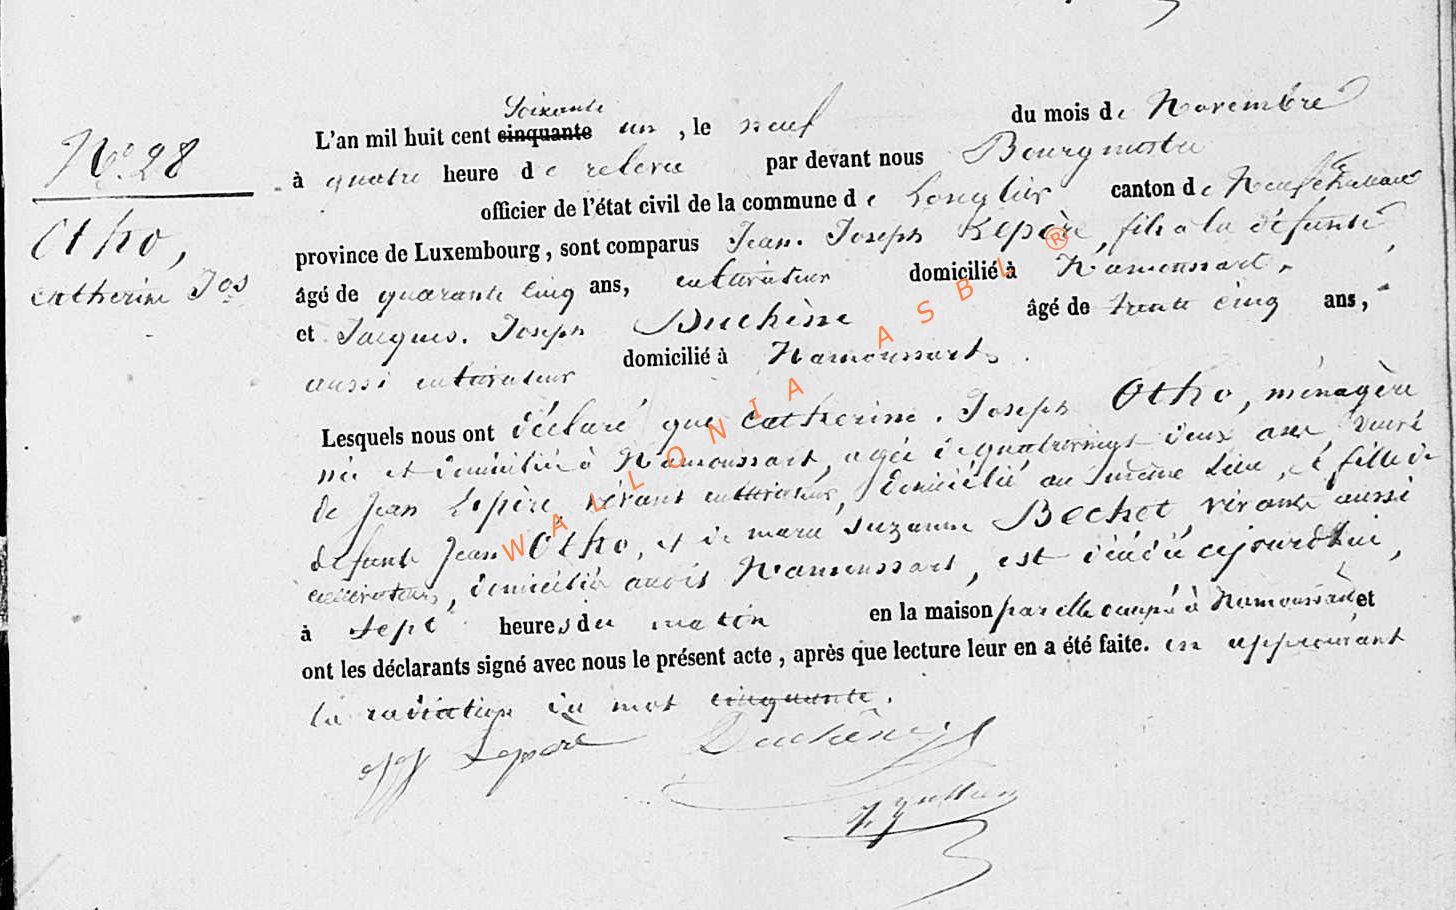 Soixante
L'an mil huit cent cinquante un, le neuf du mois de Novembre
N° 28
à quatre heure de relevée par devant nous Bourgmestre
officier de l'état civil de la commune de Longlier canton de Neufchateau
Otho,
province de Luxembourg, sont comparus Jean. Joseph Lepère, fils à la défunte,
Catherine Jos
âgé de quarante cinq ans, cultivateur domicilié à Namoussart,
et Jacques. Joseph Duchène âgé de trente cinq ans,
aussi cultivateur domicilié à Namoussart.
Lesquels nous ont déclaré que Catherine. Joseph Otho, ménagère
née et domiciliée à Namoussart, agée de quatrevingt deux ans, veuve
de Jean Lepère, vivant cultivateur, domicilié au même lieu, et fille de
défunts Jean Otho, et de marie Suzanne Bechet, vivants aussi
cultivateurs, domiciliés audit Namoussart, est décédée cejourd'hui,
à sept heures du matin en la maison par elle occupée à Namoussart et
ont les déclarants signé avec nous le présent acte, après que lecture leur en a été faite. en approuvant
la radiation du mot cinquante.
JJ Lepère Duchêne jj
WALLONIA ASBL ®